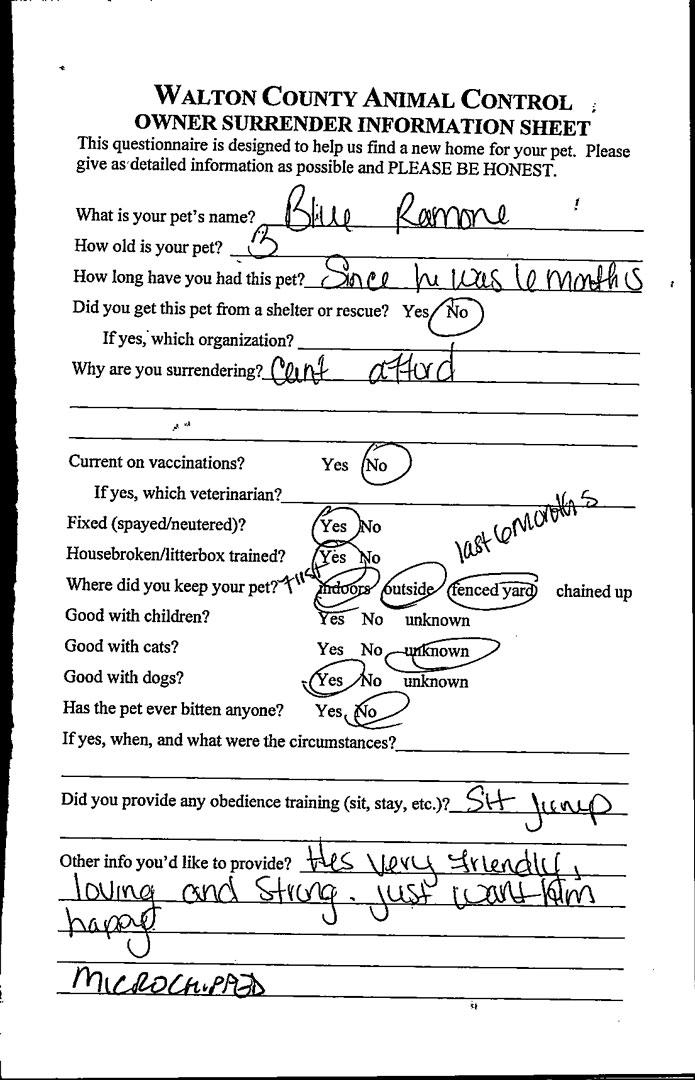 WALTON COUNTY ANIMAL CONTROL
OWNER SURRENDER INFORMATION SHEET
This questionnaire is designed to help us find a new home for your pet. Please
give as detailed information as possible and PLEASE BE HONEST.
What is your pet's name? Blue Ramone
How old is your pet? 3
How long have you had this pet? Since he was 6 months
Did you get this pet from a shelter or rescue? Yes No
If yes, which organization?
Why are you surrendering? Cant afford
Current on vaccinations? Yes No
If yes, which veterinarian?
Fixed (spayed/neutered)? Yes No
last 6 months
Housebroken/litterbox trained? Yes No
Where did you keep your pet? first indoors outside fenced yard chained up
Good with children? Yes No unknown
Good with cats? Yes No unknown
Good with dogs? Yes No unknown
Has the pet ever bitten anyone? Yes No
If yes, when, and what were the circumstances?
Did you provide any obedience training (sit, stay, etc.)? Sit Jump
Other info you'd like to provide? Hes very friendly,
loving and Strong. just want him
happy
MICROCHIPPED